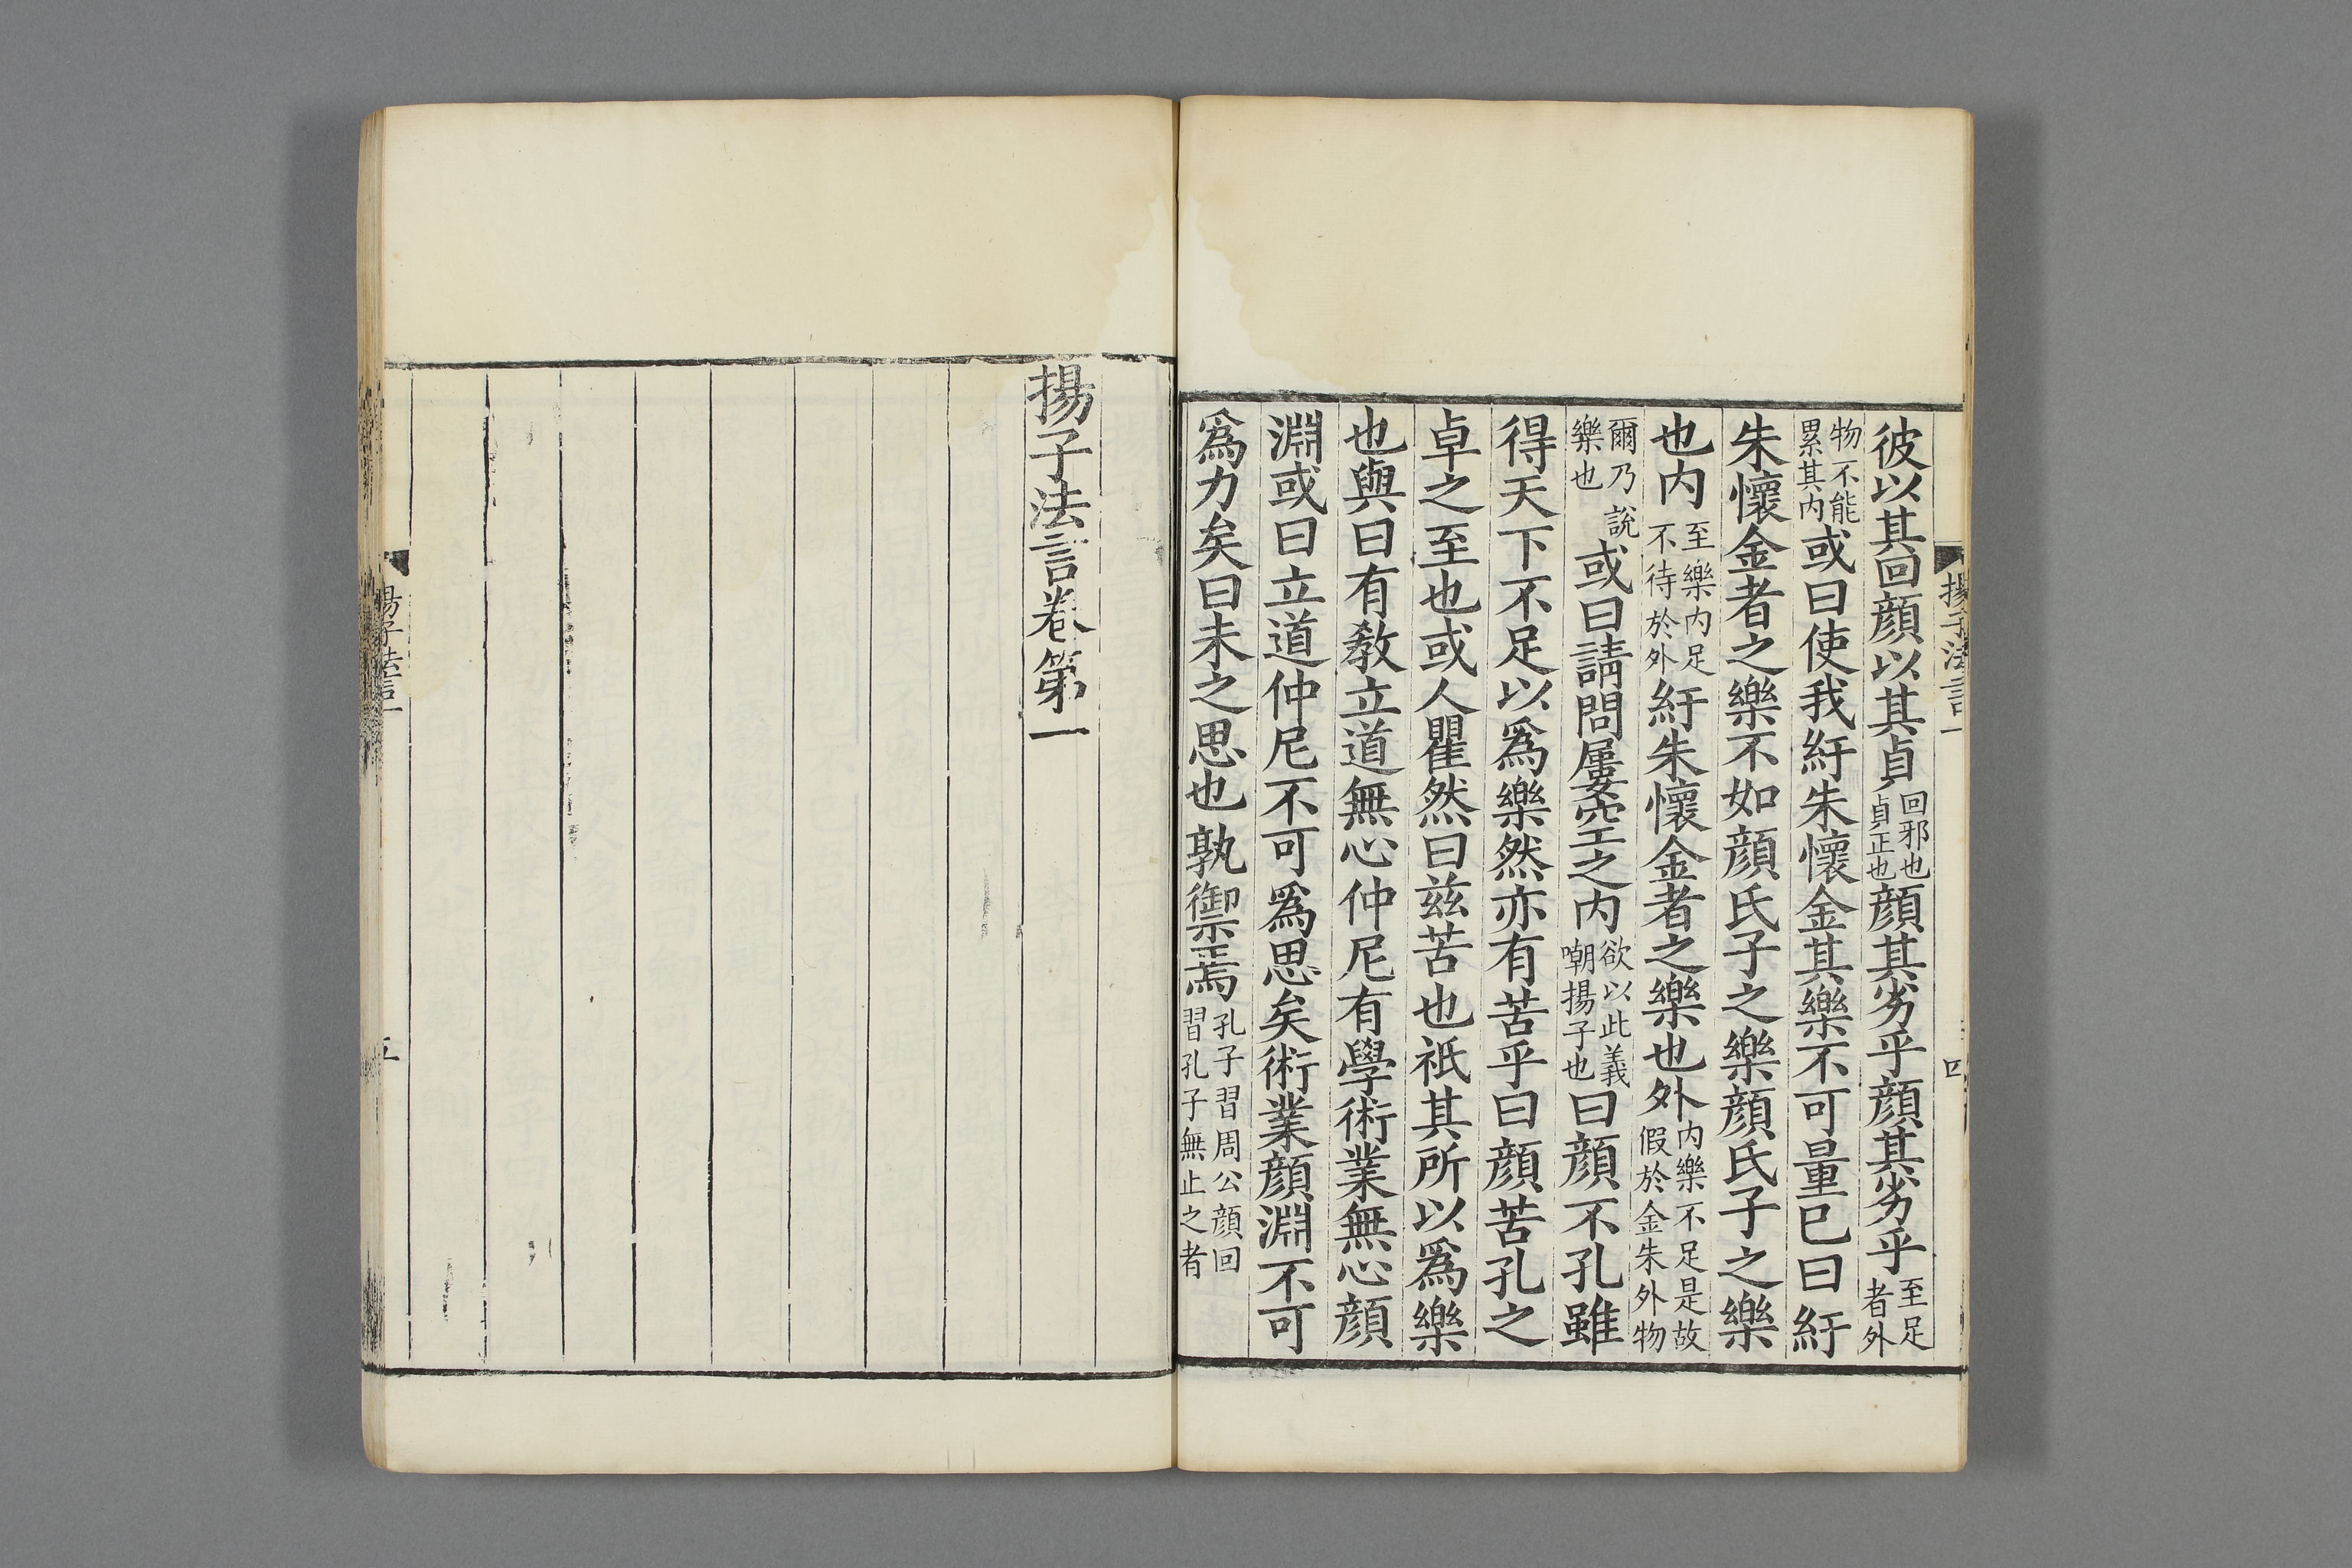 彼以其回顔以其貞回邪也貞正也顔其劣乎顔其劣乎至足者外
物不能累其内或曰使我紆朱懷金其樂不可量已曰紆
朱懷金者之樂不如顔氏子之樂顔氏子之樂
也内至樂内足不待於外紆朱懷金者之樂也外内樂不足是故假於金朱外物
爾乃說樂也或曰請問屢空之内欲以此義嘲揚子也曰顔不孔雖
得天下不足以爲樂然亦有苦乎曰顔苦孔之
卓之至也或人瞿然曰兹苦也祇其所以爲樂
也與曰有教立道無心仲尼有學術業無心顔
淵或曰立道仲尼不可爲思矣術業顔淵不可
爲力矣曰未之思也孰禦焉孔子習周公顔回習孔子無止之者
揚子法言一
四
揚子法言卷第一
揚子法言一
五